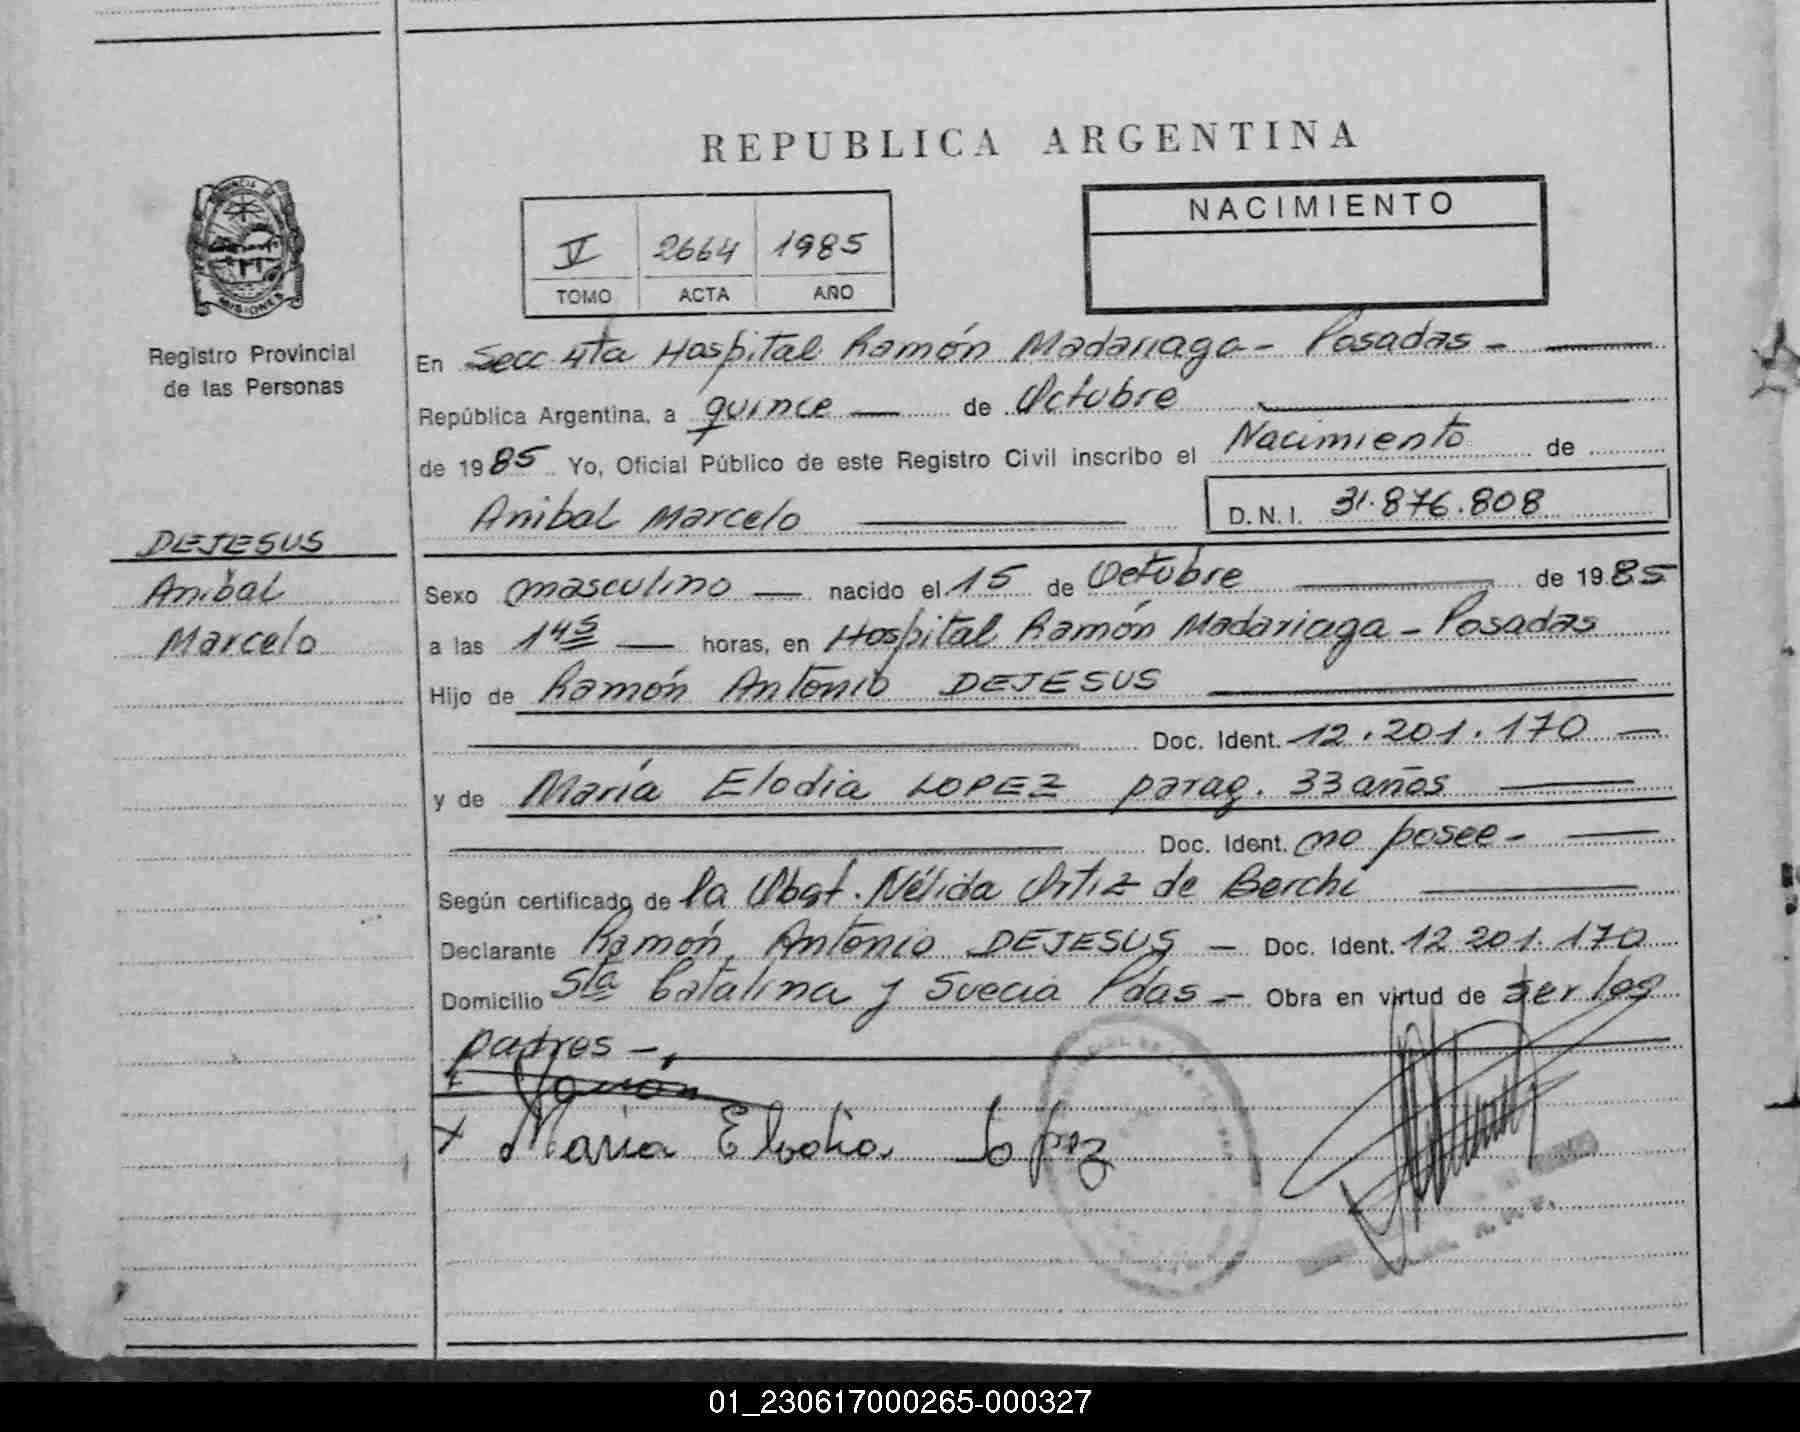 REPUBLICA ARGENTINA
PROVINCIA DE
MISIONES
Registro Provincial
de las Personas
V 2664 1985
TOMO ACTA AÑO
NACIMIENTO
En Secc 4ta Hospital Ramón Madariaga - Posadas -
República Argentina, a quince de Octubre
de 1985 Yo, Oficial Público de este Registro Civil inscribo el Nacimiento de
Anibal Marcelo
D.N.I. 31.876.808
DEJESUS
Anibal
Marcelo
Sexo masculino nacido el 15 de Octubre de 1985
a las 1 45 horas, en Hospital Ramón Madariaga - Posadas
Hijo de Ramón Antonio DEJESUS
Doc. Ident. 12.201.170
y de María Elodia LOPEZ parag. 33 años
Doc. Ident. no posee -
Según certificado de la Obst. Nélida Ortiz de Berchi
Declarante Ramón Antonio DEJESUS - Doc. Ident. 12 201.170
Domicilio Sta Catalina y Suecia Pdas - Obra en virtud de ser los
padres -
x Maria Elodia Lopez
01_230617000265-000327